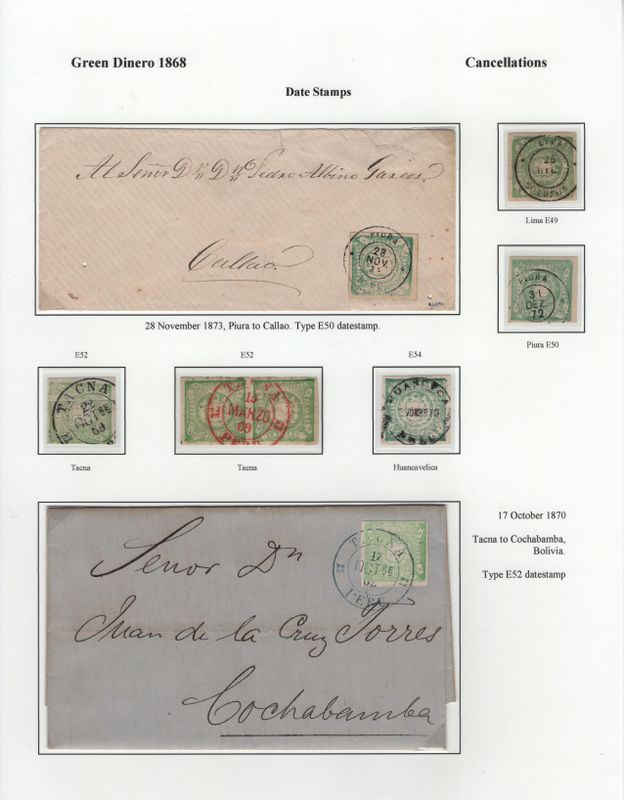 Green Dinero 1868
Cancellations
Date Stamps
Al Señor Dn Dn Pedro Albino Garces.
Callao.
PIURA
28
NOV.
LIMA
25
Lima E49
PIURA
31
DEZ
72
Piura E50
28 November 1873, Piura to Callao. Type E50 datestamp.
E52
E52
E54
TACNA
22
68
TACNA
15
MARZO
69
PERU
HUANCAVELICA
Tacna
Tacna
Huancavelica
17 October 1870
Tacna to Cochabamba,
Bolivia.
Type E52 datestamp
TACNA
17
Señor Dn
Juan de la Cruz Torres
Cochabamba